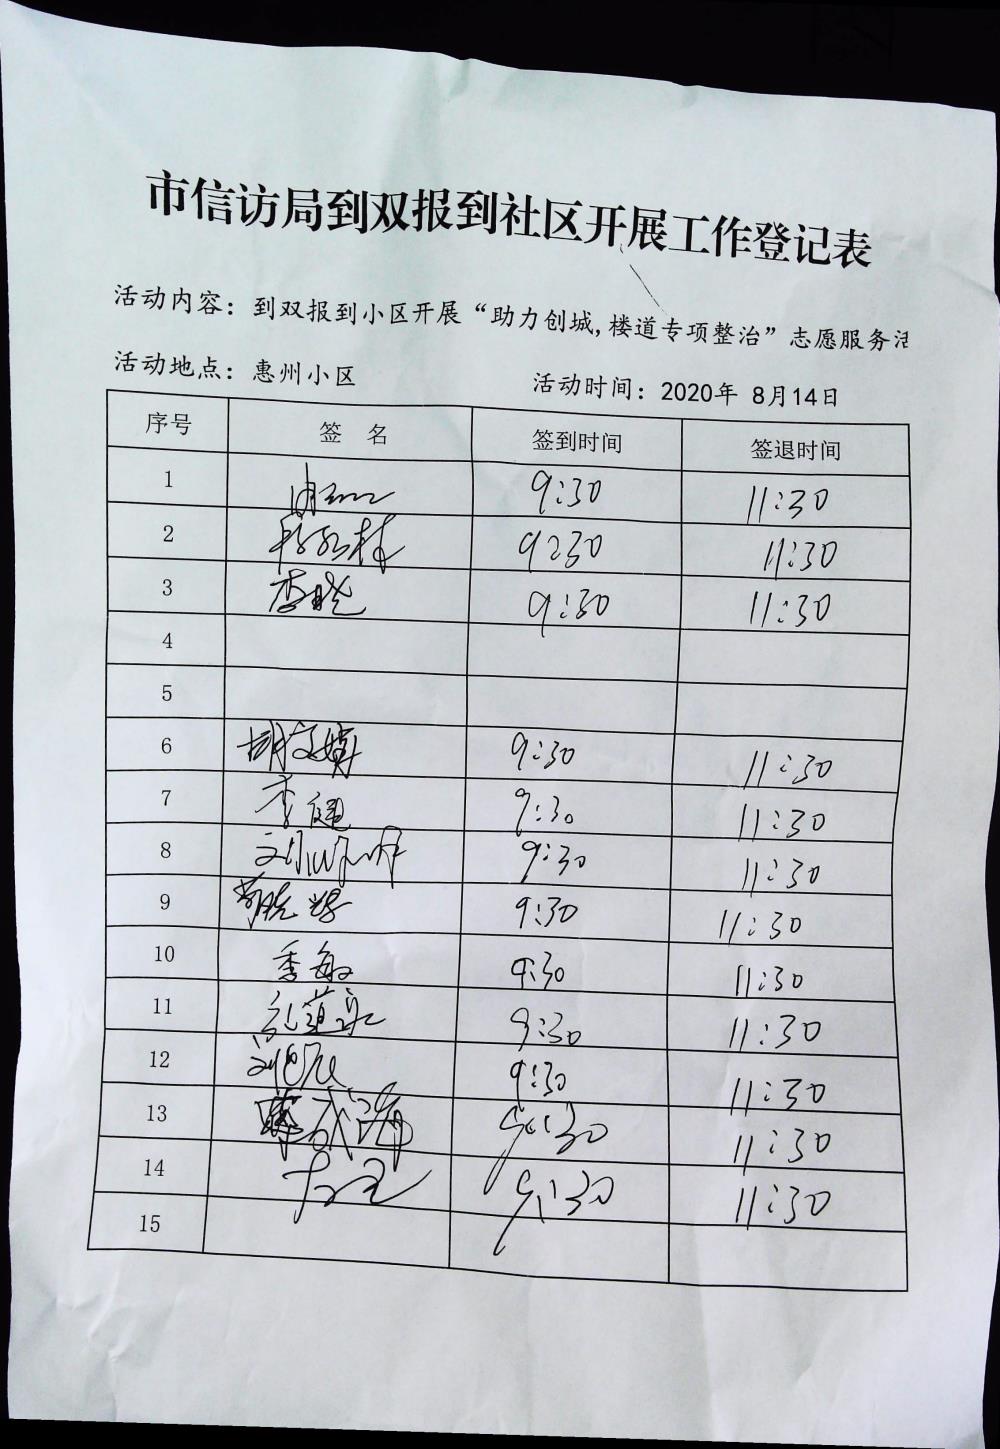 市信访局到双报到社区开展工作登记表
活动内容：到双报到小区开展“助力创城,楼道专项整治”志愿服务活
活动地点：惠州小区 活动时间：2020年 8月14日
序号 签 名 签到时间 签退时间
1 9:30 11:30
2 9:30 11:30
3 李晓 9:30 11:30
4
5
6 9:30 11:30
7 李健 9:30 11:30
8 9:30 11:30
9 9:30 11:30
10 季敏 9:30 11:30
11 9:30 11:30
12 9:30 11:30
13 9:30 11:30
14 9:30 11:30
15